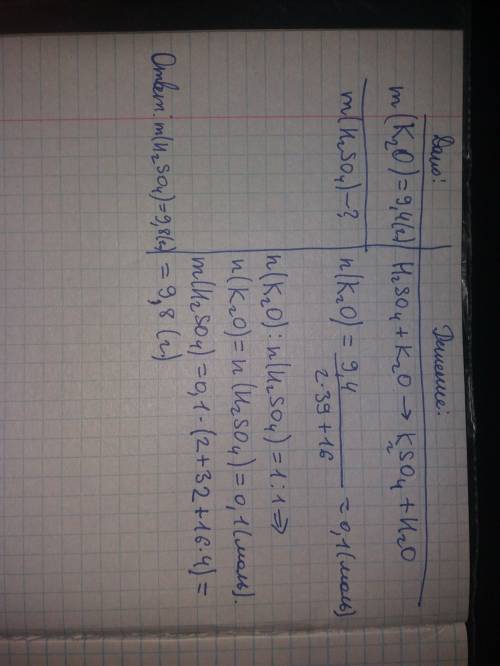 Дано:
m(K₂O)=9,4(г)
m(H₂SO₄)-?
Решение:
H₂SO₄+K₂O→K₂SO₄+H₂O
n(K₂O)=9,4/2·39+16=0,1(моль)
n(K₂O):n(H₂SO₄)=1:1⇒
n(K₂O)=n(H₂SO₄)=0,1(моль).
m(H₂SO₄)=0,1·(2+32+16·4)=
=9,8(г)
Ответ: m(H₂SO₄)=9,8(г)